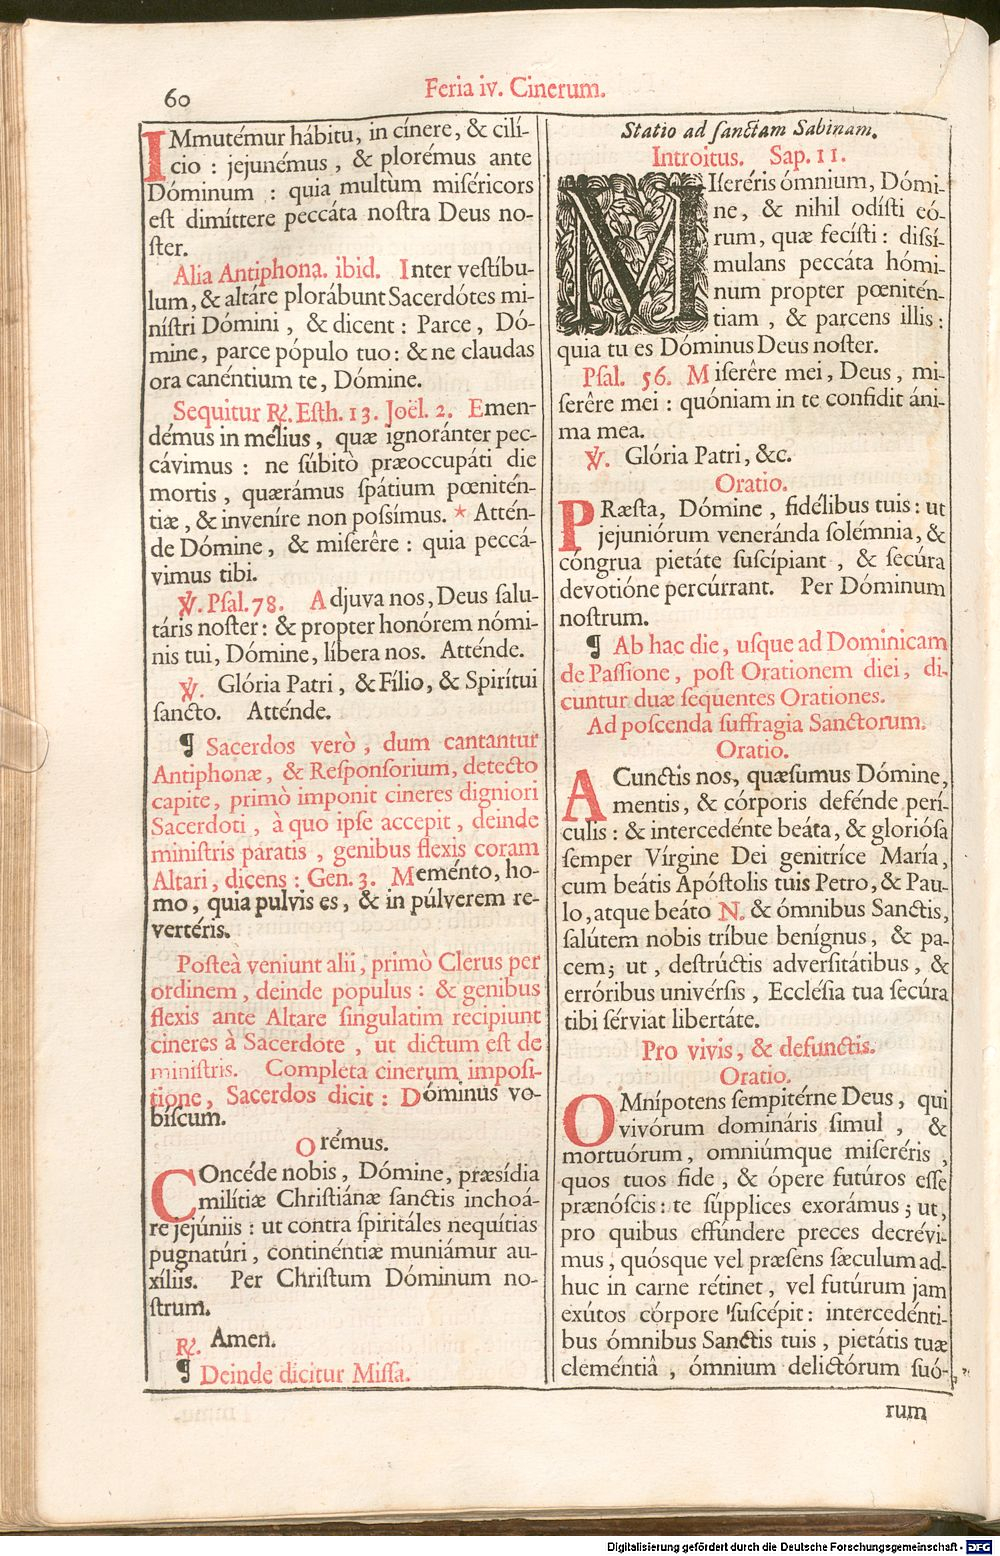 60
Feria iv. Cinerum.
IMmutémur hábitu, in cínere, & cilí-
cio : jejunémus , & plorémus ante
Dóminum : quia multùm miséricors
est dimíttere peccáta nostra Deus no-
ster.
Alia Antiphona. ibid. Inter vestíbu-
lum, & altáre plorábunt Sacerdótes mi-
nístri Dómini , & dicent : Parce , Dó-
mine, parce pópulo tuo : & ne claudas
ora canéntium te, Dómine.
Sequitur ℟. Esth. 13. Joël. 2. Emen-
démus in mélius , quæ ignoránter pec-
cávimus : ne súbitò præoccupáti die
mortis , quærámus spátium pœnitén-
tiæ , & inveníre non possímus. * Attén-
de Dómine , & miserêre : quia peccá-
vimus tibi.
℣. Psal. 78. Adjuva nos, Deus salu-
táris noster : & propter honórem nómi-
nis tui, Dómine, líbera nos. Atténde.
℣. Glória Patri , & Fílio, & Spirítui
sancto. Atténde.
¶ Sacerdos verò , dum cantantur
Antiphonæ, & Responsorium, detecto
capite, primò imponit cineres digniori
Sacerdoti , à quo ipse accepit , deinde
ministris paratis , genibus flexis coram
Altari, dicens : Gen. 3. Meménto, ho-
mo, quia pulvis es, & in púlverem re-
vertéris.
Posteà veniunt alii, primò Clerus per
ordinem, deinde populus : & genibus
flexis ante Altare singulatim recipiunt
cineres à Sacerdote , ut dictum est de
ministris. Completa cinerum imposi-
tione, Sacerdos dicit : Dóminus vo-
bíscum.
Orémus.
COncéde nobis, Dómine, præsídia
milítiæ Christiánæ sanctis inchoá-
re jejúniis : ut contra spiritáles nequítias
pugnatúri , continéntiæ muniámur au-
xíliis. Per Christum Dóminum no-
strum.
℟. Amen.
¶ Deinde dicitur Missa.
Statio ad sanctam Sabinam.
Introitus. Sap. 11.
MIseréris ómnium, Dómi-
ne, & nihil odísti eó-
rum, quæ fecísti : dissí-
mulans peccáta hómi-
num propter pœnitén-
tiam , & parcens illis :
quia tu es Dóminus Deus noster.
Psal. 56. Miserêre mei, Deus , mi-
serêre mei : quóniam in te confidit áni-
ma mea.
℣. Glória Patri, &c.
Oratio.
PRæsta, Dómine , fidélibus tuis : ut
jejuniórum veneránda solémnia, &
cóngrua pietáte suscípiant , & secúra
devotióne percúrrant. Per Dóminum
nostrum.
¶ Ab hac die, usque ad Dominicam
de Passione , post Orationem diei, di-
cuntur duæ sequentes Orationes.
Ad poscenda suffragia Sanctorum.
Oratio.
A Cunctis nos, quæsumus Dómine,
mentis, & córporis defénde perí-
culis : & intercedénte beáta, & gloriósa
semper Vírgine Dei genitríce María,
cum beátis Apóstolis tuis Petro, & Pau-
lo, atque beáto N. & ómnibus Sanctis,
salútem nobis tríbue benígnus , & pa-
cem; ut , destrúctis adversitátibus , &
erróribus univérsis , Ecclésia tua secúra
tibi sérviat libertáte.
Pro vivis, & defunctis.
Oratio.
OMnípotens sempitérne Deus , qui
vivórum domináris simul , &
mortuórum, omniúmque miseréris ,
quos tuos fide , & ópere futúros esse
prænóscis : te súpplices exorámus ; ut,
pro quibus effúndere preces decrévi-
mus, quósque vel præsens sæculum ad-
huc in carne rétinet , vel futúrum jam
exútos córpore suscépit : intercedénti-
bus ómnibus Sanctis tuis , pietátis tuæ
cleméntiâ , ómnium delictórum suó-
rum
Digitalisierung gefördert durch die Deutsche Forschungsgemeinschaft - DFG